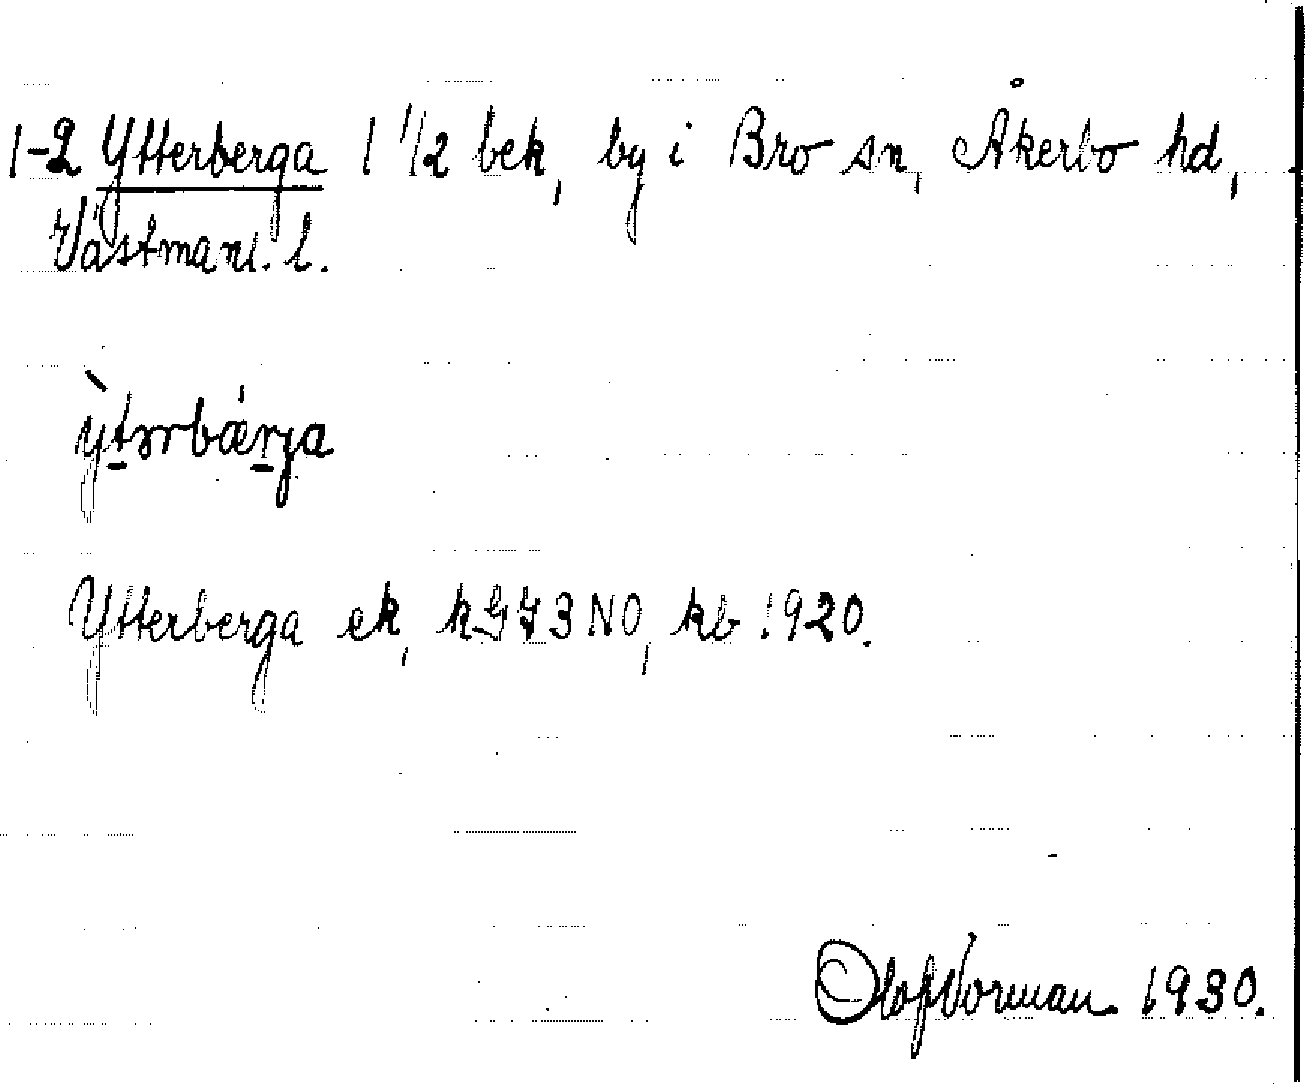 1-2 Ytterberga 1 1/2 bek, by i Bro sn, Åkerbo hd,
Västmanl. l.
ỳtərbǽrja
Ytterberga ek, k G73 NO, kb 1920.
Olof Norman 1930.